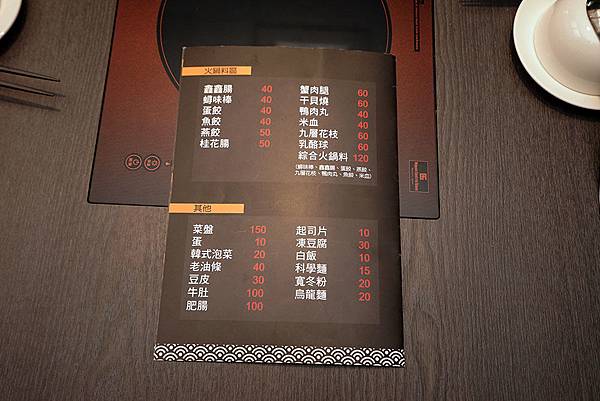 火鍋料區
鑫鑫腸 40
鱘味棒 40
蛋餃 40
魚餃 40
燕餃 50
桂花腸 50
蟹肉腿 60
干貝燒 60
鴨肉丸 60
米血 40
九層花枝 60
乳酪球 60
綜合火鍋料 120
(鱘味棒、鑫鑫腸、蛋餃、燕餃、
九層花枝、鴨肉丸、魚餃、米血)
其他
菜盤 150
蛋 10
韓式泡菜 20
老油條 40
豆皮 30
牛肚 100
肥腸 100
起司片 10
凍豆腐 30
白飯 10
科學麵 15
寬冬粉 20
烏龍麵 20